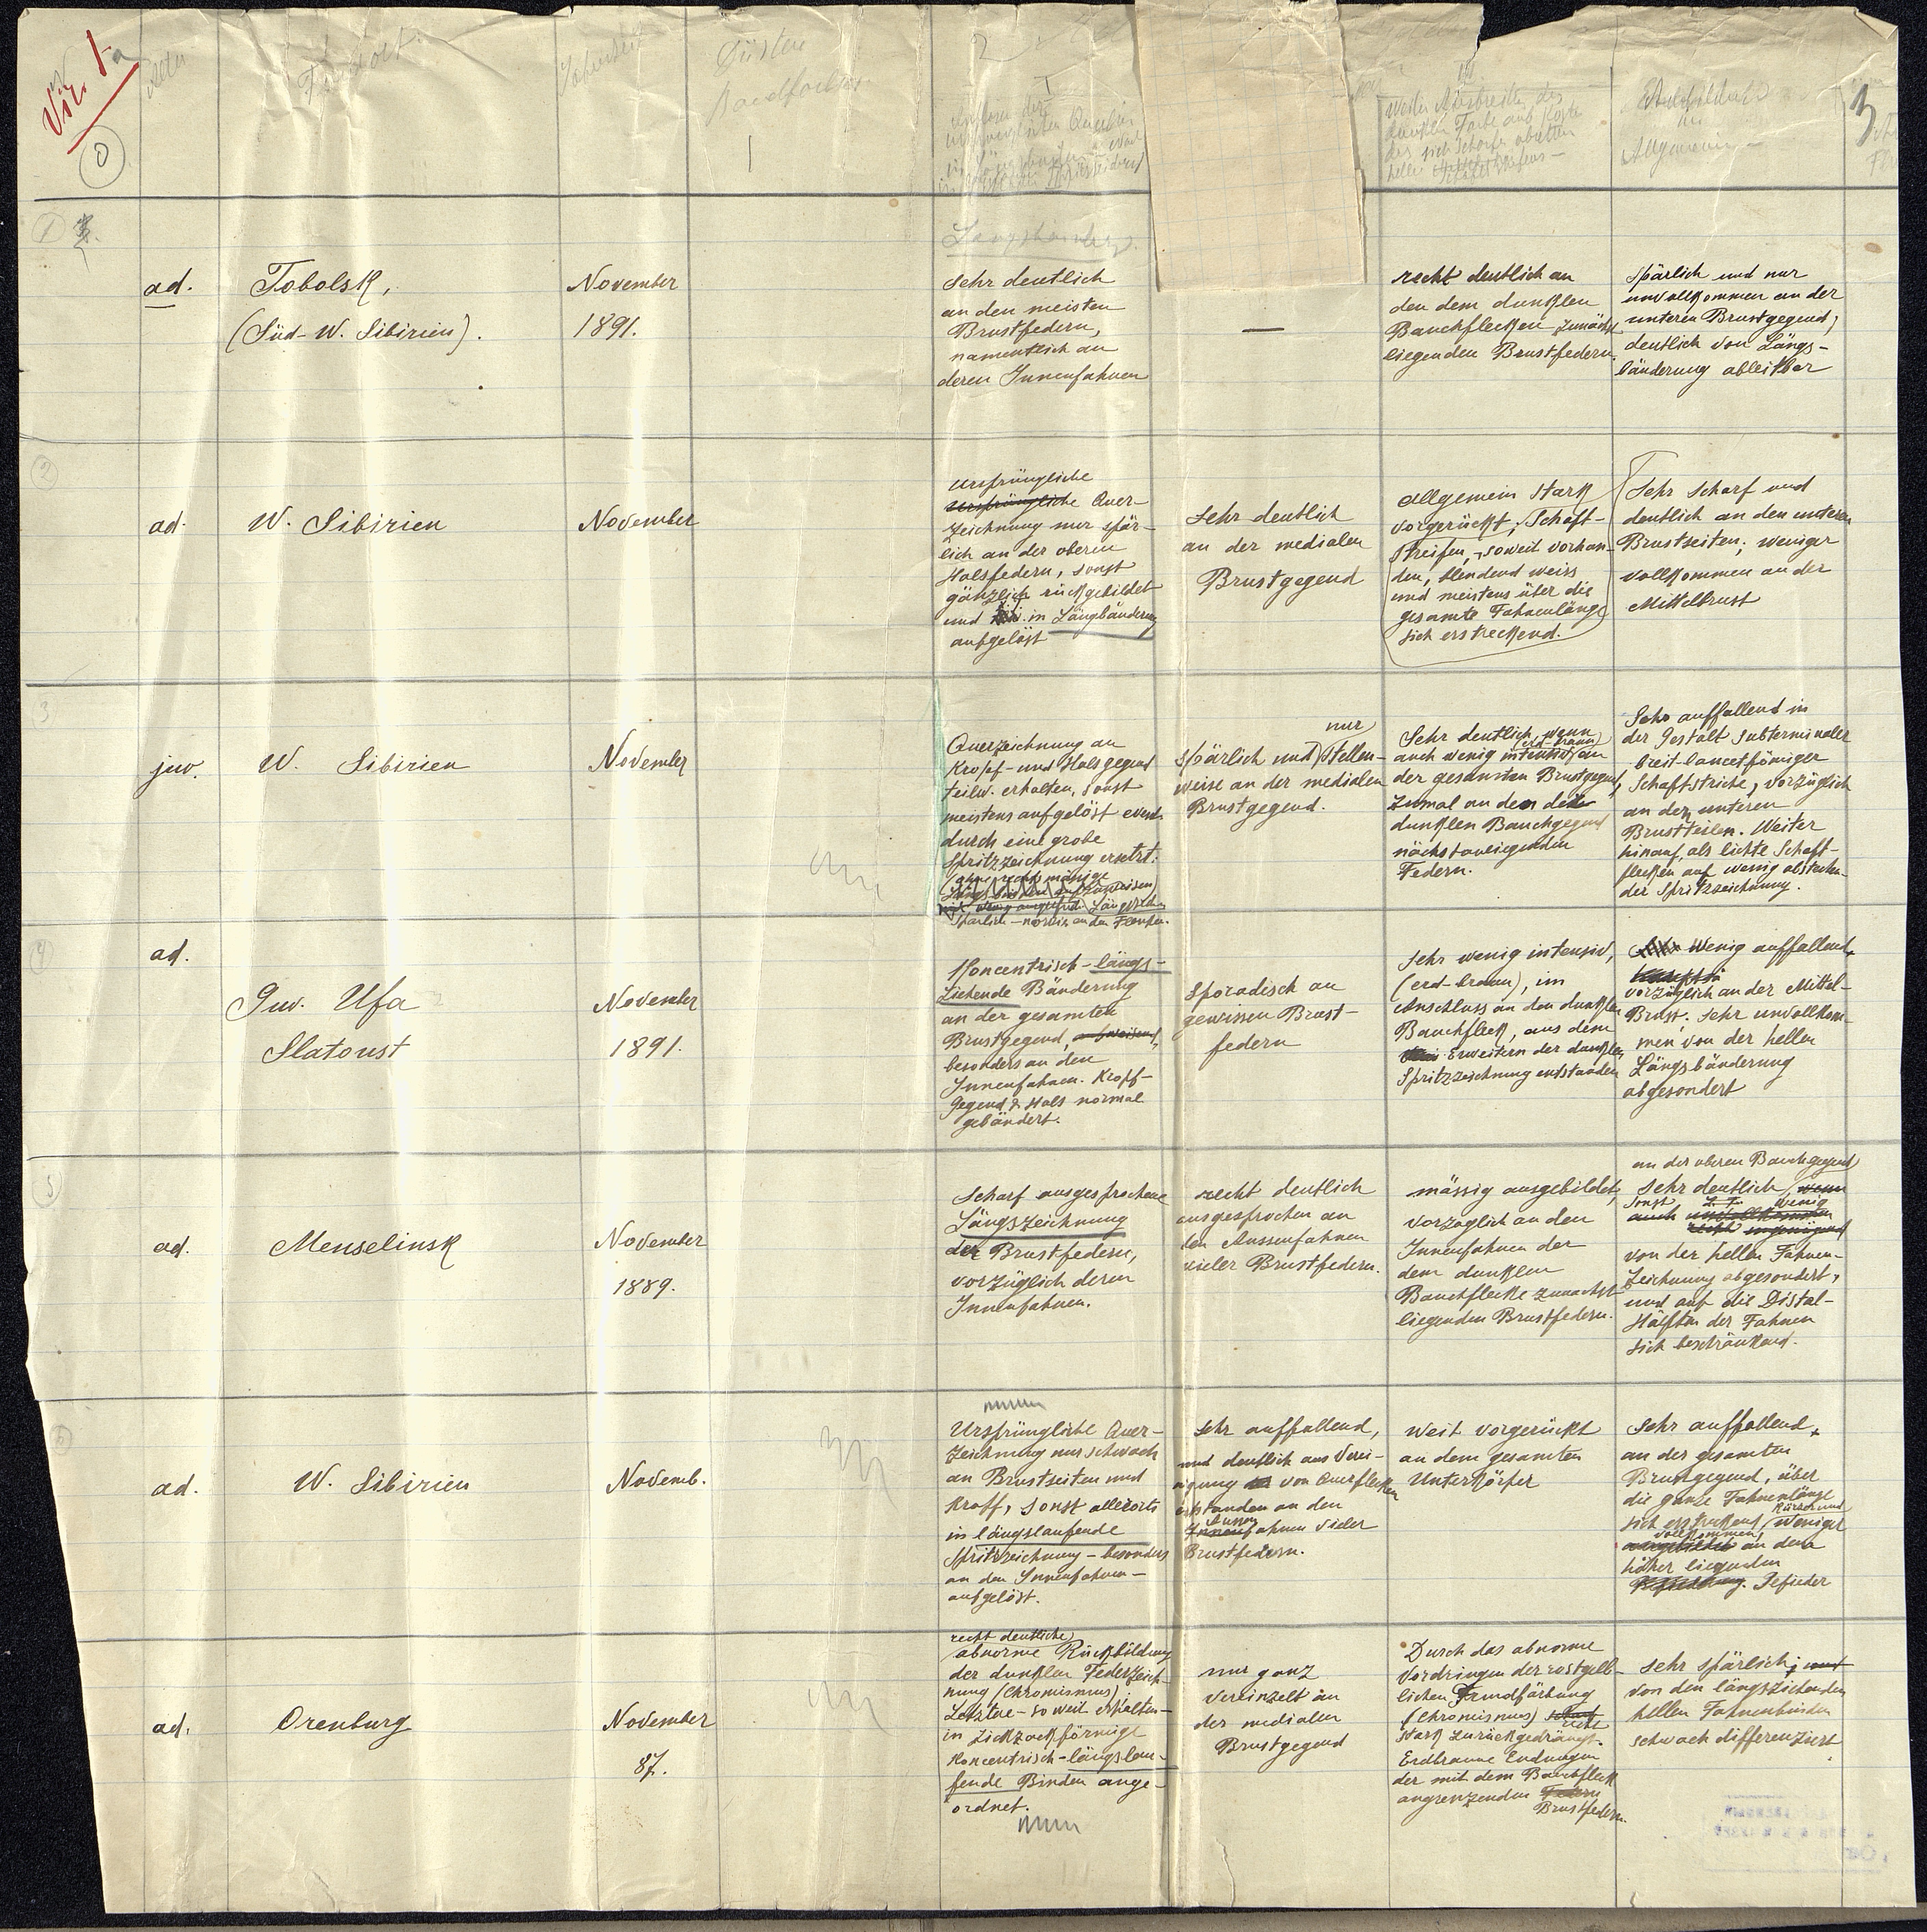 Fundort
1
2
I
Düster
3
Allgemein
Längsbänder
ad.
Tobolsk,
(Süd-W. Sibirien).
November
1891.
sehr deutlich
an den meisten
Brustfedern,
namentlich an
deren Innenfahnen
—
recht deutlich an
den dem dunklen
Bauchflecken zunächst
liegenden Brustfedern.
Spärlich und nur
unvollkommen an der
unteren Brustgegend;
deutlich von Längs-
bänderung ableitbar
2
ad.
W. Sibirien
November
ursprüngliche
ursprüngliche Quer-
zeichnung nur spär-
lich an der oberen
Halsfedern, sonst
gänzlich rückgebildet
und in Längsbänderung
aufgelöst
Sehr deutlich
an der medialen
Brustgegend
Allgemein stark
vorgerückt; Schaft-
streifen, soweit vorhan-
den, blendend weiss
und meistens über die
gesamte Fahnenlänge
sich erstreckend.
Sehr scharf und
deutlich an den unteren
Brustseiten; weniger
vollkommen an der
Mittelbrust
3
juv.
W. Sibirien
November
Querzeichnung an
Kropf- und Halsgegend
teilw. erhalten, sonst
meistens aufgelöst event.
durch eine grobe
Spritzzeichnung ersetzt.
Spärlich - an den
nur
Spärlich und stellen-
weise an der medialen
Brustgegend.
Sehr deutlich, wenn
(erd-braun)
auch wenig intensiv, an
der gesamten Brustgegend,
zumal an den der
dunklen Bauchgegend
nächstanliegenden
Federn.
Sehr auffallend in
der Gestalt subterminaler
breit-lancetförmiger
Schaftstriche, vorzüglich
an den unteren
Brustteilen. Weiter
hinauf, als lichte Schaft-
flecken auf wenig abstechen-
der Spritzzeichnung.
4
ad.
Guv. Ufa
Slatoust
November
1891.
Koncentrisch-längs-
ziehende Bänderung
an der gesamten
Brustgegend,
besonders an den
Innenfahnen. Kropf-
gegend & Hals normal
gebändert.
Sporadisch an
gewissen Brust-
federn
Sehr wenig intensiv,
(erd-braun), im
Anschluss an den dunklen
Bauchfleck, aus dem
Erweitern der dunklen
Spritzzeichnung entstanden
Wenig auffallend,
vorzüglich an der Mittel-
Brust. Sehr unvollkom-
men von der hellen
Längsbänderung
abgesondert
5
ad.
Menselinsk
November
1889.
Scharf ausgesprochene
Längszeichnung
der Brustfedern,
vorzüglich deren
Innenfahnen.
recht deutlich
ausgesprochen an
den Aussenfahnen
vieler Brustfedern.
mässig ausgebildet,
vorzüglich an den
Innenfahnen der
dem dunklen
Bauchflecke zunächst
liegenden Brustfedern.
an der oberen Bauchgegend
sehr deutlich, wenn
sonst z. T. wenig
auch unvollkommen
von der hellen Fahnen-
zeichnung abgesondert,
und auf die Distal-
Hälften der Fahnen
sich beschränkend.
6
ad.
W. Sibirien
Novemb.
Ursprüngliche Quer-
zeichnung nur schwach
an Brustseiten und
Kropf, sonst allerorts
in längslaufende
Spritzzeichnung - besonders
an den Innenfahnen -
aufgelöst.
Sehr auffallend,
und deutlich aus Verei-
nigung von Querflecken
entstanden an den
Aussen
Innenfahnen vieler
Brustfedern.
Weit vorgerückt
an dem gesamten
Unterkörper
Sehr auffallend,
an der gesamten
Brustgegend, über
die ganze Fahnenlänge
kürzer und
sich erstreckend, weniger
vollkommen
ausgebildet an dem
höher liegenden
Gefieder
ad.
Orenburg
November
87.
recht deutliche
abnorme Rückbildung
der dunklen Federzeich-
nung (Chromismus)
Letztere - soweit erhalten -
in zickzackförmige
Koncentrisch-längslau-
fende Binden ange-
ordnet.
nur ganz
vereinzelt an
der medialen
Brustgegend
Durch das abnorme
Vordringen der rostgelb-
lichen Grundfärbung
(Chromismus)
recht
stark zurückgedrängt.
Erdbraune Endungen
der mit dem Bauchfleck
angrenzenden Federn
Brustfedern.
Sehr spärlich; und
von den längsziehenden
hellen Fahnenbinden
schwach differenziert